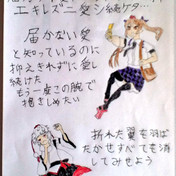 エキレズニ愛シ続ケタ…
届かない愛
と知っているのに
抑えきれずに愛し
続けた
もう一度この腕で
抱きしめたい
折れた翼を羽ば
たかせすべてをも消
してみせよう